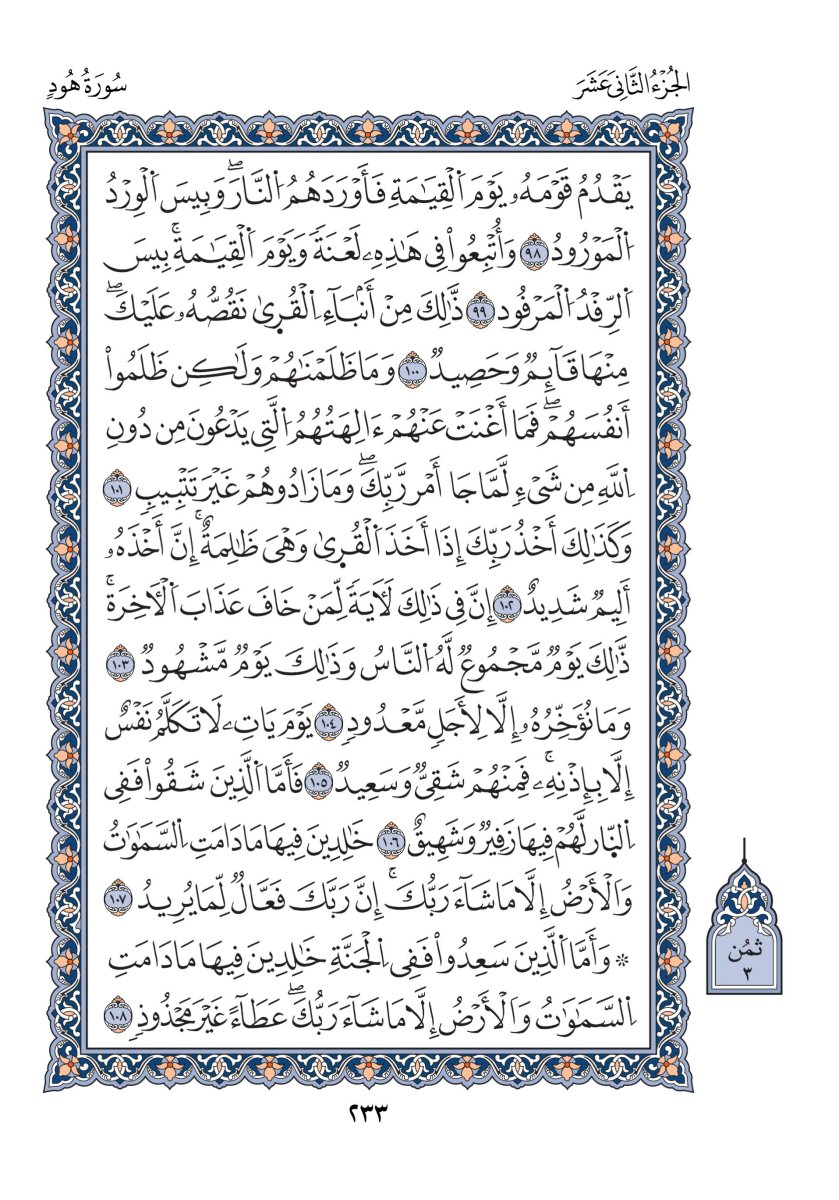 الجُزْءُ الثَّانِيَ عَشَرَ
سُورَةُ هُودٍ
يَقْدُمُ قَوْمَهُۥ يَوْمَ اَ۬لْقِيَٰمَةِ فَأَوْرَدَهُمُ اُ۬لنَّارَۖ وَبِيسَ اَ۬لْوِرْدُ
اُ۬لْمَوْرُودُ ٩٨ وَأُتْبِعُواْ فِي هَٰذِهِۦ لَعْنَةٗ وَيَوْمَ اَ۬لْقِيَٰمَةِۚ بِيسَ
اَ۬لرِّفْدُ اُ۬لْمَرْفُودُ ٩٩ ذَّٰلِكَ مِنْ أَنۢبَآءِ اِ۬لْقُرىٰ نَقُصُّهُۥ عَلَيْكَۖ
مِنْهَا قَآئِمٞ وَحَصِيدٞ ١٠٠ وَمَا ظَلَمْنَٰهُمْ وَلَٰكِن ظَلَمُواْ
أَنفُسَهُمْۖ فَمَا أَغْنَتْ عَنْهُمْ ءَالِهَتُهُمُ اُ۬لَّتِي يَدْعُونَ مِن دُونِ
اِ۬للَّهِ مِن شَيْءٖ لَّمَّا جَا أَمْر رَّبِّكَۖ وَمَا زَادُوهُمْ غَيْرَ تَتْبِيبٖ ١٠١
وَكَذَٰلِكَ أَخْذُ رَبِّكَ إِذَا أَخَذَ اَ۬لْقُرىٰ وَهْيَ ظَٰلِمَةٌۚ إِنَّ أَخْذَهُۥ
أَلِيمٞ شَدِيدٌ ١٠٢ إِنَّ فِي ذَٰلِكَ لَأٓيَةٗ لِّمَنْ خَافَ عَذَابَ اَ۬لْأٓخِرَةِۚ
ذَّٰلِكَ يَوْمٞ مَّجْمُوعٞ لَّهُ اُ۬لنَّاسُ وَذَٰلِكَ يَوْمٞ مَّشْهُودٞ ١٠٣
وَمَا نُؤَخِّرُهُۥ إِلَّا لِأَجَلٖ مَّعْدُودٖ ١٠٤ يَوْمَ يَاتِۦ لَا تَكَلَّمُ نَفْسٌ
إِلَّا بِإِذْنِهِۦۚ فَمِنْهُمْ شَقِيّٞ وَسَعِيدٞ ١٠٥ فَأَمَّا اَ۬لَّذِينَ شَقُواْ فَفِي
اِ۬لنّ۪ار لَّهُمْ فِيهَا زَفِيرٞ وَشَهِيقٌ ١٠٦ خَٰلِدِينَ فِيهَا مَا دَامَتِ اِ۬لسَّمَٰوَٰتُ
وَالْأَرْضُ إِلَّا مَا شَآءَ رَبُّكَۚ إِنَّ رَبَّكَ فَعَّالٞ لِّمَا يُرِيدُ ١٠٧
۞ وَأَمَّا اَ۬لَّذِينَ سَعِدُواْ فَفِي اِ۬لْجَنَّةِ خَٰلِدِينَ فِيهَا مَا دَامَتِ
اِ۬لسَّمَٰوَٰتُ وَالْأَرْضُ إِلَّا مَا شَآءَ رَبُّكَۖ عَطَآءً غَيْرَ مَجْذُوذٖ ١٠٨
ثُمُن
٣
٢٣٣